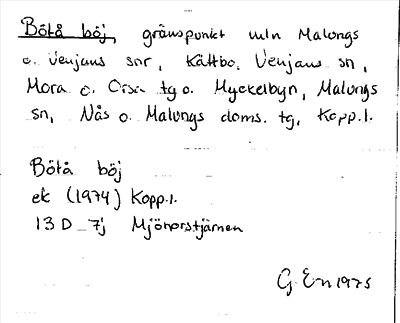 Bötå böj, gränspunkt mln Malungs
o. Venjans snr, Kättbo, Venjans sn,
Mora o. Orsa tg o. Myckelbyn, Malungs
sn, Nås o. Malungs doms. tg, Kopp.l.
Bötå böj
ek (1974) Kopp.l.
13 D 7j Mjöhorstjärnen
G. En 1975